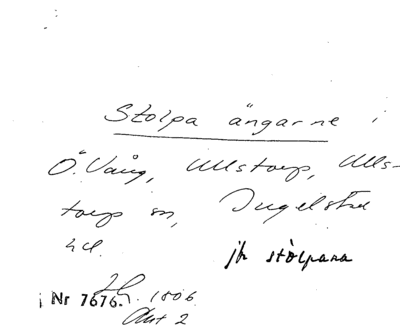 Stolpa ängarne i
Ö. Vång, Ullstorp, Ulls-
torp sn, Ingelstad
hd.
jfr stòlpana
i Nr 7676. 1806
Akt 2